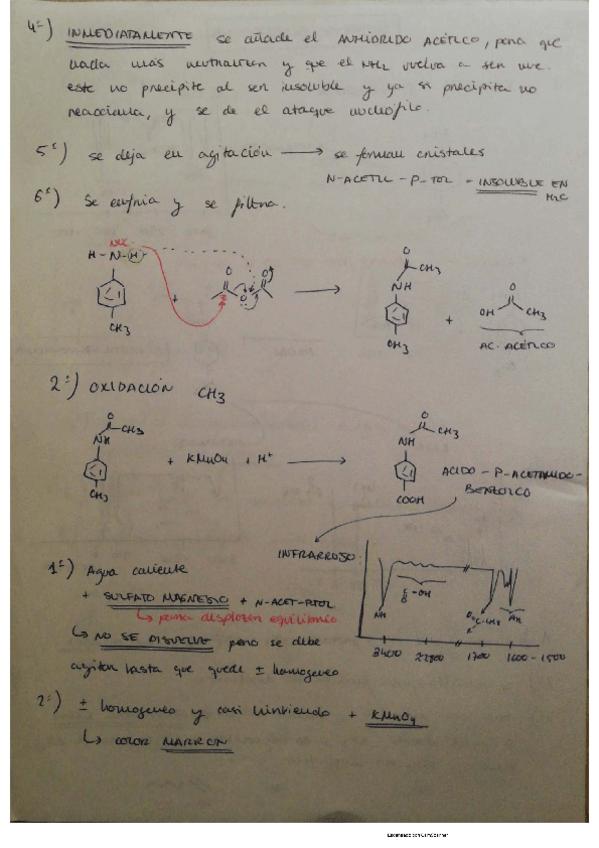 4º) INMEDIATAMENTE se añade el ANHIDRIDO ACÉTICO, para que
nada más neutralicen y que el NH2 vuelva a ser
este no precipite al ser insoluble y ya si precipita no
reacciona, y se de el ataque nucleófilo.
5º) se deja en agitación → se forman cristales
N-ACETIL-P-TOL - INSOLUBLE EN
H2O
6º) Se enfria y se filtra.
H-N-H
O
O
O
CH3
+
→
O
CH3
NH
CH3
+
O
OH
CH3
AC. ACÉTICO
2º) OXIDACIÓN CH3
O
CH3
NH
CH3
+ KMnO4 + H+ →
O
CH3
NH
COOH
ACIDO-P-ACETAMIDO-
BENZOICO
INFRARROJO
NH
C-OH
O
C-CH3
AR
3400
1700
1600-1500
1º) Agua caliente
+ SULFATO MAGNESIO + N-ACET-PTOL
↳ para desplazar equilibrio
↳ NO SE DISUELVE pero se debe
agitar hasta que quede ± homogeneo
2º) ± homogeneo y casi hirviendo + KMnO4
↳ COLOR MARRON